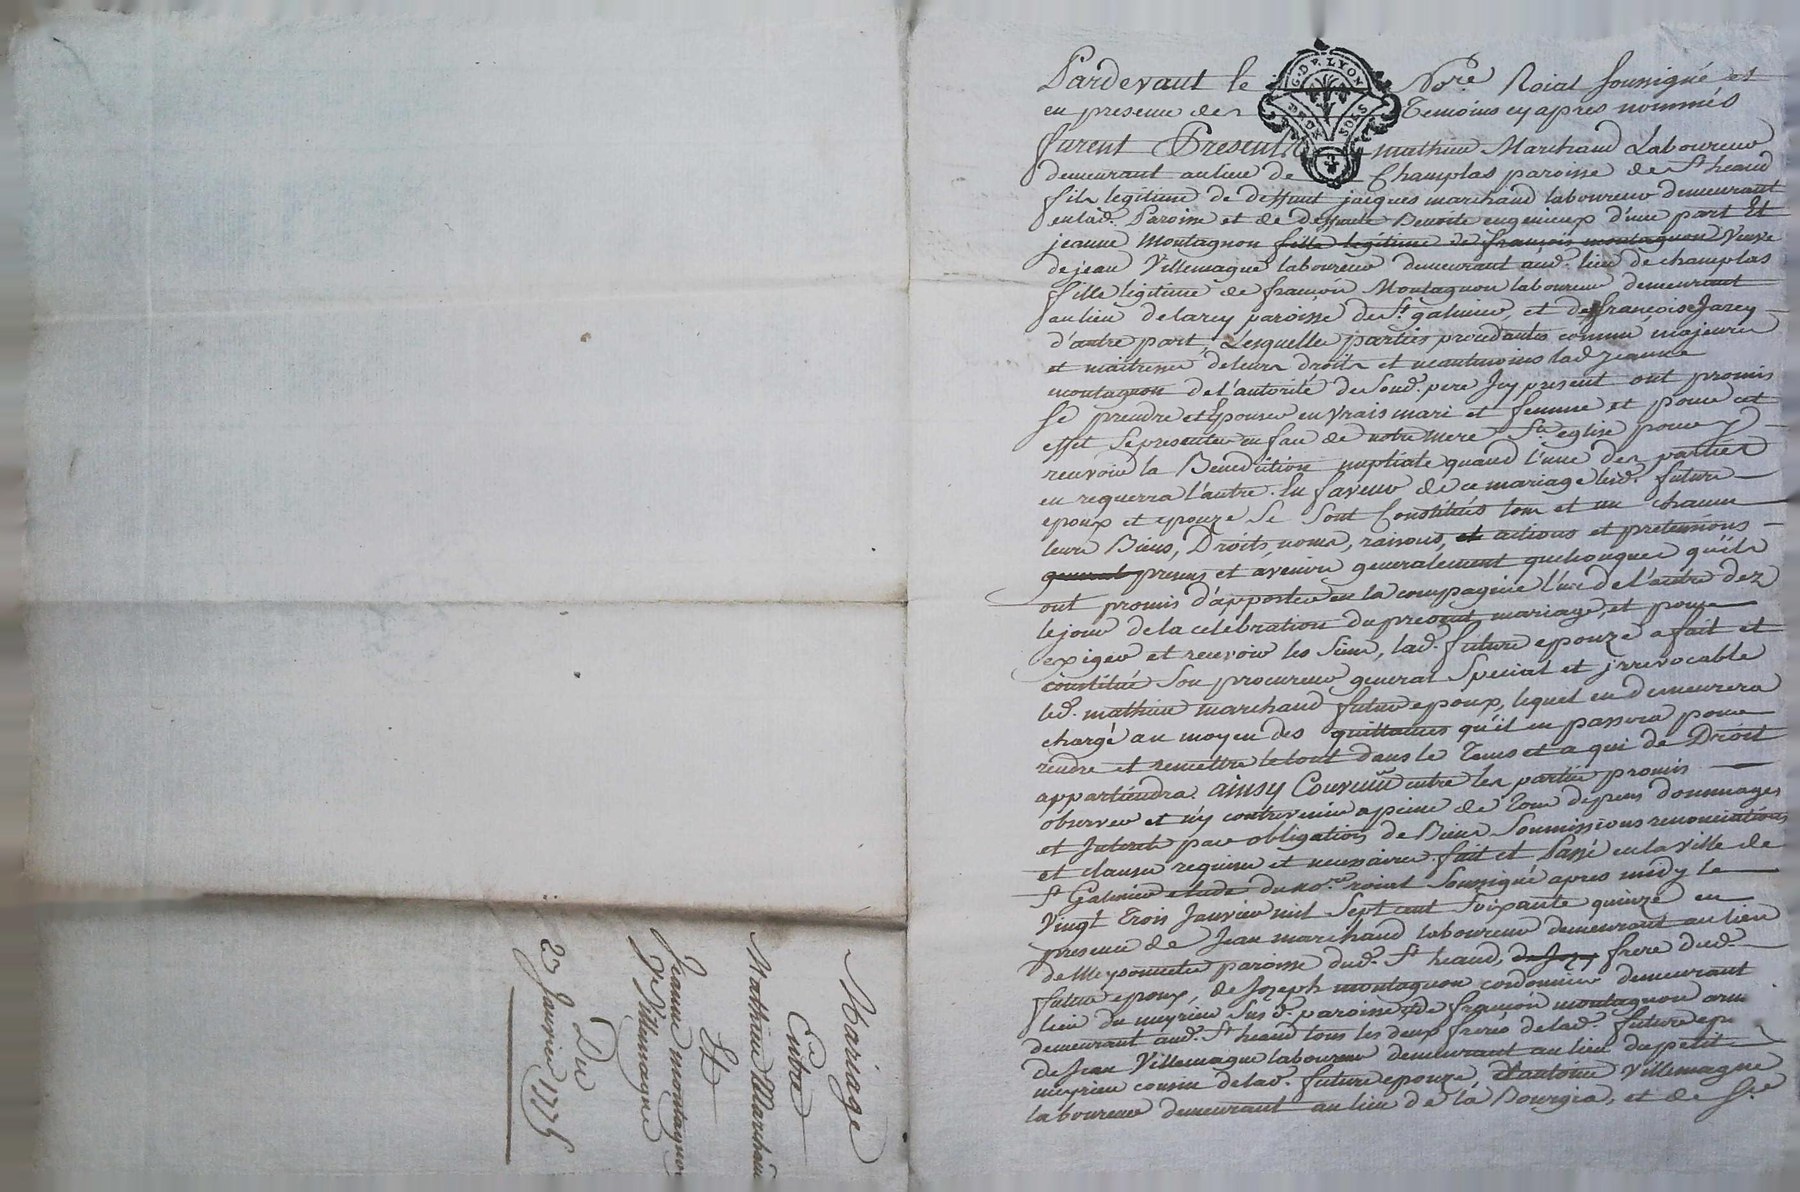 Pardevant le No.re Roial soussigné et
en presence des Temoins cy apres nommés
furent Presents mathieu Marchand Laboureur
demeurant au lieu de Champlas paroisse de St. heand
fils legitime de deffunt jacques marchand laboureur demeurant
en lad. Paroisse et de deffunte Benoite eugenieux d'une part Et
jeanne Montagnon fille legitime de françois montagnon Veuve
de jean Villemagne laboureur demeurant aud. lieu de champlas
fille legitime de françois Montagnon laboureur demeurant
au lieu de larey paroisse de St. galmier, et de françoise Jarey
d'autre part, Lesquelles parties procedantes comme majeures
et maitresse de leurs droits et neantmoins lad jeanne
montagnon de l'autorité de Sond. pere Icy present ont promis
se prendre et Epouser en vrais mari et femme et pour cet
effet se presenter en face de notre mere Ste eglise pour y
recevoir la Benediction nuptiale quand l'une des parties
en requerra l'autre. En faveur de ce mariage lesd. future
epoux et epouze Se Sont Constitués tous et un chacun
leurs Biens, Droits, noms, raisons, et actions et pretensions
general presens et avenir generalement quelconques qu'ils
ont promis d'apporter en la compagnie l'un de l'autre dez
le jour de la celebration du present mariage, et pour
exiger et recevoir les Siens, lad. future epouze a fait et
constitué Son procureur general Special et jrrevocable
led. mathieu marchand futur epoux, lequel en demeurera
chargé au moyen des quittances qu'il en passera pour
rendre et remettre le tout dans le Tems et a qui de Droit
appartiendra. ainsy Convenu entre les parties promis
observer et n'y contrevenir a peine de Tous depens dommages
et Interets par obligation de Biens Soumissions renonciations
et clauses requises et necessaires. fait et Passé en la ville de
St Galmier etude du no.re roial Soussigné apres midy le
Vingt Trois Janvier mil Sept cent Soixante quinze en
presence de Jean marchand laboureur demeurant au lieu
de Meysonnette paroisse dud. St heand, de Jozp frere dud.
futur epoux, de Jozeph montagnon cordonnier demeurant
lieu du meyrieu Sus d. paroisse et de françois montagnon
demeurant aud. St heand tous les deux freres de lad. future
de Jean Villemagne laboureur demeurant au lieu du petit
meyrieu cousin de lad. future epouze, et antoine Villemagne
laboureur demeurant au lieu de la Bourgia, et de Sr.
Mariage
Entre
Mathieu Marchand
Et
Jeanne montagnon
Ve Villemagne
Du
23 Janvier 1775
G. DE LYON
DEUX SOLS